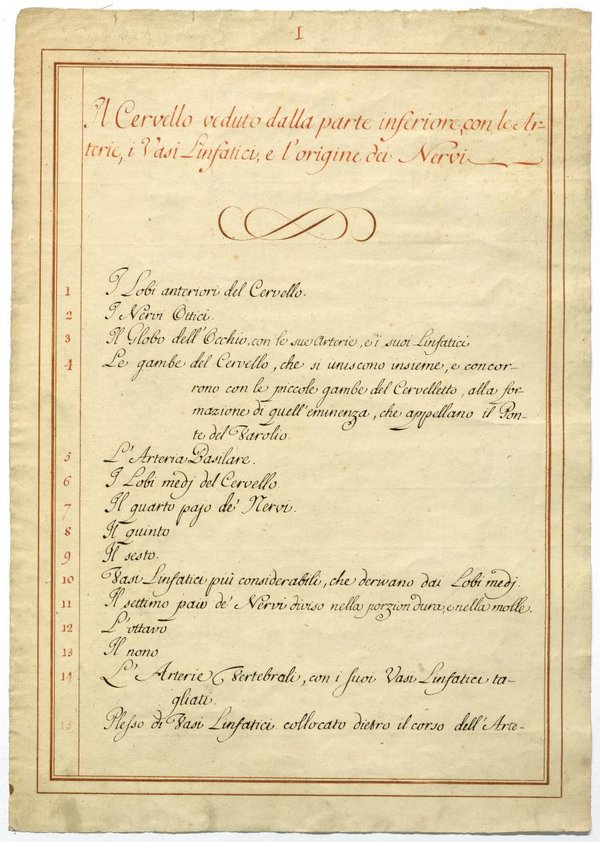 I
Il Cervello veduto dalla parte inferiore, con le Ar-
terie, i Vasi Linfatici, e l'origine dei Nervi
1 I Lobi anteriori del Cervello.
2 I Nervi Ottici.
3 Il Globo dell'Occhio, con le sue Arterie, e i suoi Linfatici
4 Le gambe del Cervello, che si uniscono insieme, e concor-
rono con le piccole gambe del Cervelletto, alla for-
mazione di quell'eminenza, che appellano il Pon-
te del Varolio.
5 L'Arteria Basilare.
6 I Lobi medj del Cervello
7 Il quarto pajo de' Nervi.
8 Il quinto
9 Il sesto.
10 Vasi Linfatici più considerabili, che derivano dai Lobi medj.
11 Il settimo paio de' Nervi diviso nella porzion dura, e nella molle.
12 L'ottavo
13 Il nono
14 L'Arterie Vertebrali, con i suoi Vasi Linfatici ta-
gliati.
15 Plesso di Vasi Linfatici collocato dietro il corso dell'Arte-